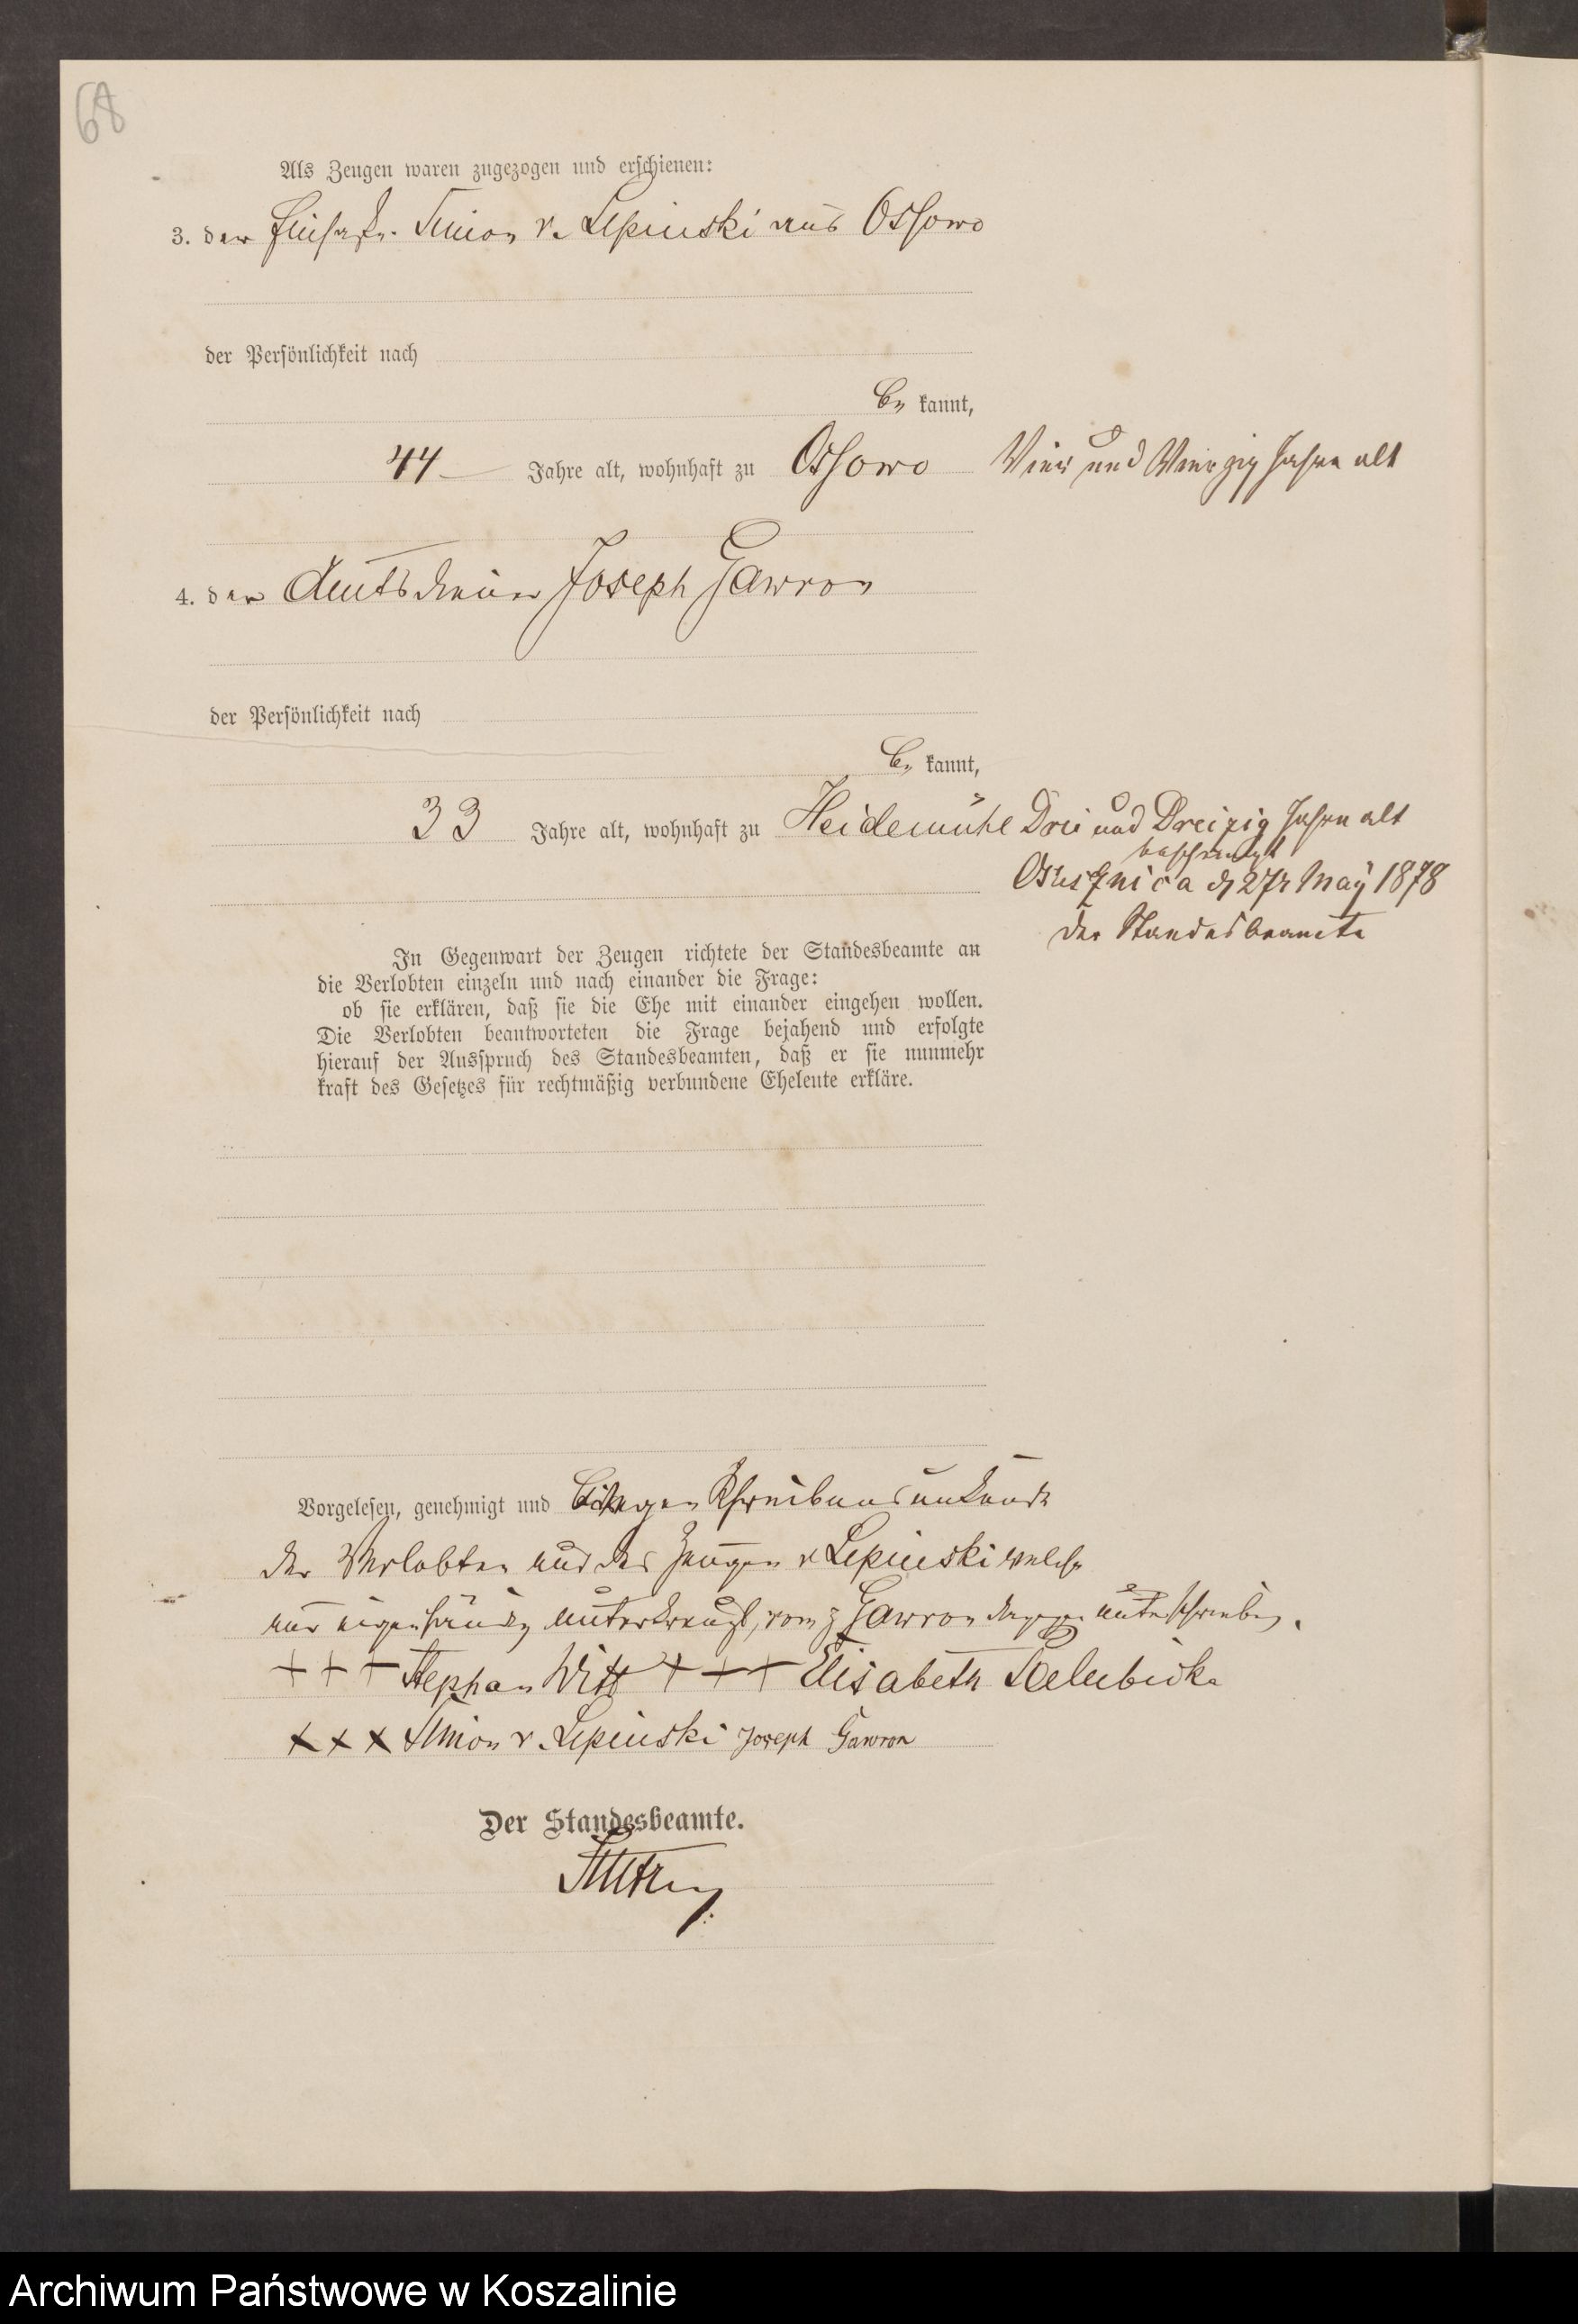 68
Als Zeugen waren zugezogen und erschienen:
3. der Simon v. Lipinski aus Ossowo
der Persönlichkeit nach
be kannt,
44 Jahre alt, wohnhaft zu Ossowo Vier und Vierzig Jahre alt
4. der Amtsdiener Joseph Gawron
der Persönlichkeit nach
be kannt,
33 Jahre alt, wohnhaft zu Heidemühl Drei und Dreizig Jahre alt
Oslusznica d 27t May 1878
Der Standesbeamte
In Gegenwart der Zeugen richtete der Standesbeamte an
die Verlobten einzeln und nach einander die Frage:
ob sie erklären, daß sie die Ehe mit einander eingehen wollen.
Die Verlobten beantworteten die Frage bejahend und erfolgte
hierauf der Ausspruch des Standesbeamten, daß er sie nunmehr
kraft des Gesetzes für rechtmäßig verbundene Eheleute erkläre.
Vorgelesen, genehmigt und wegen Schreibensunkunde
der Verlobten und des Zeugen v Lipinski welche
nur eigenhändig unterkreuzt, vom z Gawron dagegen unterschrieben.
+ + + Stephan Witt + + + Elisabeth
x x x Simon v. Lipinski Joseph Gawron
Der Standesbeamte.
Archiwum Państwowe w Koszalinie